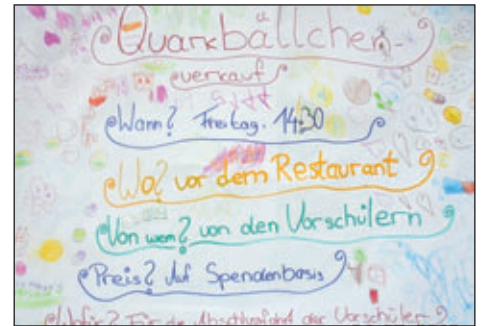 Quarkbällchen-
verkauf
Wann? Freitag. 14:30
Wo? vor dem Restaurant
Von wem? von den Vorschülern
Preis? Auf Spendenbasis
Wofür? Für die Abschlussfahrt der Vorschüler